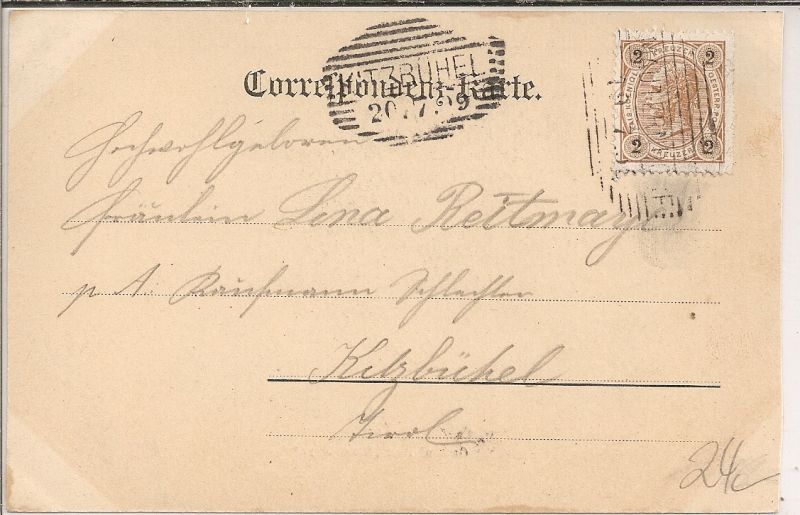 Correspondenz-Karte.
KITZBÜHEL
20.7.99
2 KREUZER 2
2 KREUZER 2
Hochwohlgeboren
Fräulein Lina Reitmayr
p. A. Kaufmann Schlechter
Kitzbühel
Tirol
24